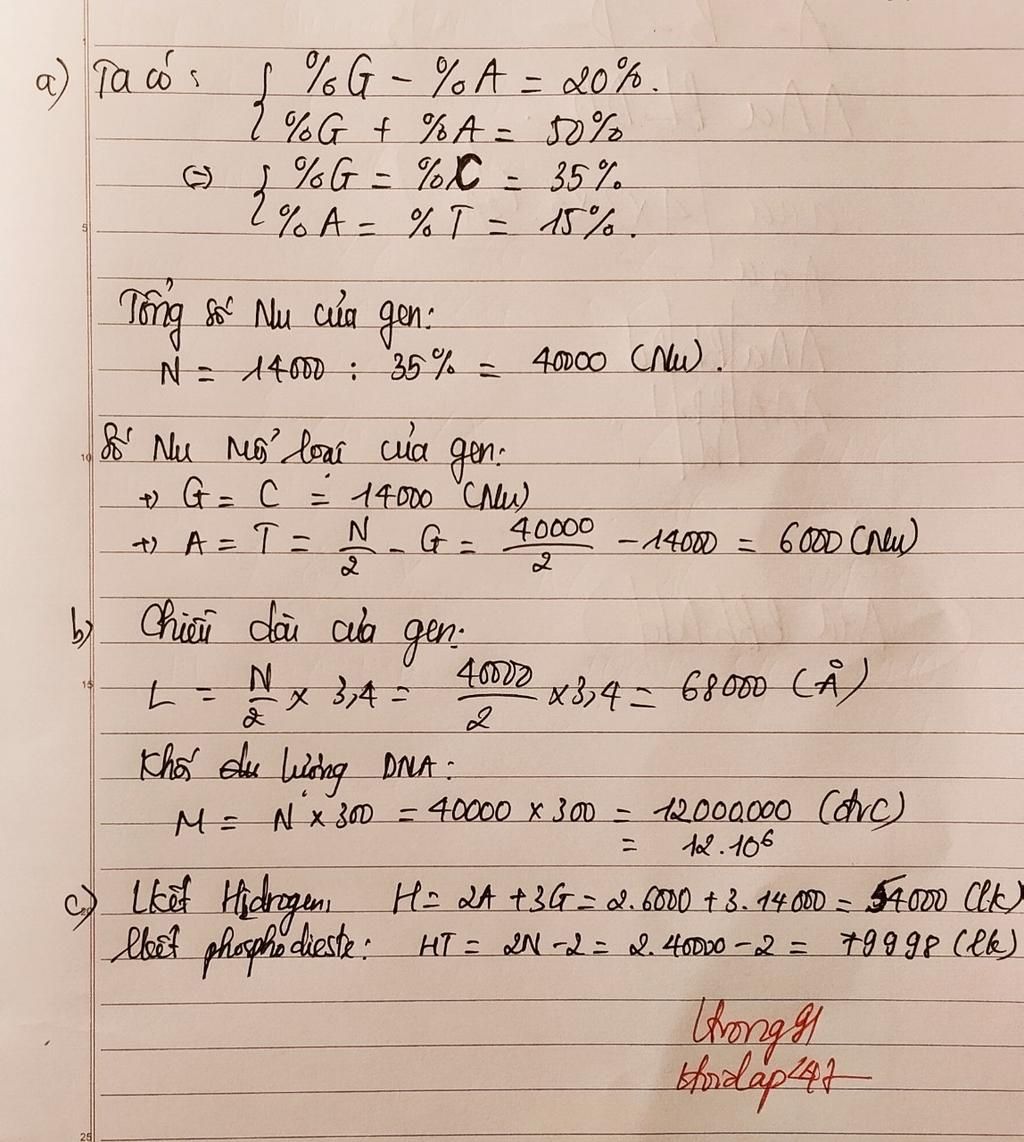 a) Ta có: { %G - %A = 20%.
{ %G + %A = 50%
(=) { %G = %C = 35%
{ %A = %T = 15%.
5
Tổng số Nu của gen:
N = 14000 : 35% = 40000 (Nu).
10
Số Nu mỗi loại của gen:
+) G = C = 14000 (Nu)
+) A = T = N/2 - G = 40000/2 - 14000 = 6000 (Nu)
b) Chiều dài của gen:
15
L = N/2 x 3,4 = 40000/2 x 3,4 = 68000 (Å)
Khối lượng DNA:
M = N x 300 = 40000 x 300 = 12000.000 (đvC)
= 12.10⁶
c) Lkết Hidrogen, H = 2A + 3G = 2.6000 + 3.14000 = 54000 (lk)
lkết phosphodieste: HT = 2N - 2 = 2.40000 - 2 = 79998 (lk)
25